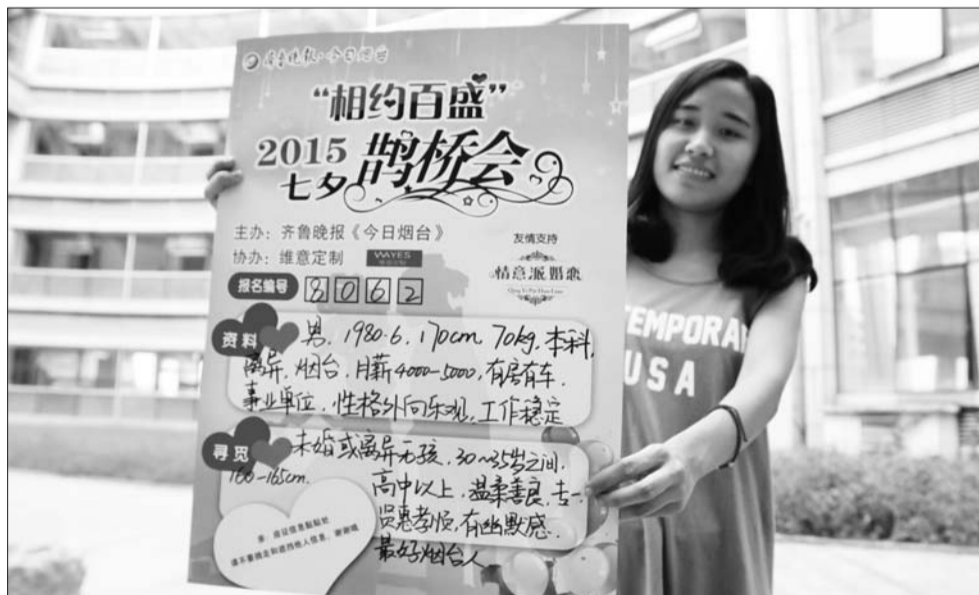 齐鲁晚报·今日烟台
“相约百盛”
2015
七夕 鹊桥会
主办：齐鲁晚报《今日烟台》
协办：维意定制 WAYES
友情支持
情意派婚恋
Qing Yi Pai Hun Lian
报名编号 8062
资料
男，1980.6，170cm，70kg，本科，
离异，烟台，月薪4000-5000，有房有车，
事业单位，性格外向乐观，工作稳定
寻觅
未婚或离异无孩，30~35岁之间，
160-165cm.
高中以上，温柔善良，专一，
贤惠孝顺，有幽默感.
最好烟台人
亲：应征信息黏贴处
请不要拽走和遮挡他人信息，谢谢哦
TEMPORA
USA